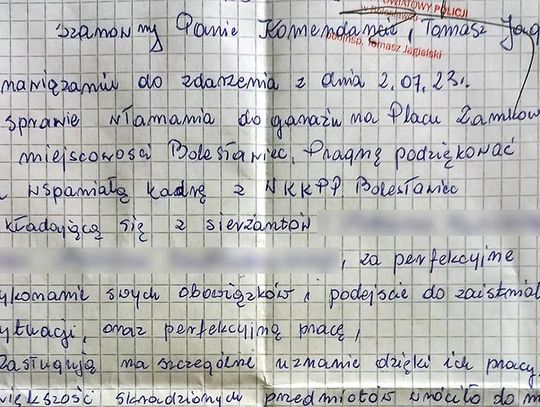 POWIATOWY POLICJI
w Bolesławcu
podinsp. Tomasz Jagielski
Szanowny Panie Komendancie, Tomasz Jag
nawiązaniu do zdarzenia z dnia 2.07.23r.
sprawie włamania do garażu na Placu Zamkow
miejscowości Bolesławiec. Pragnę podziękować
wspaniałą kadrę z WKKPP Bolesławiec
kładającą się z sierżantów
, za perfekcyjne
ykonanie swych obowiązków i podejście do zaistniał
ytuacji, oraz perfekcyjną pracę,
Zasługują na szczególne uznanie dzięki ich pracy
większości skradzionych przedmiotów wróciło do m